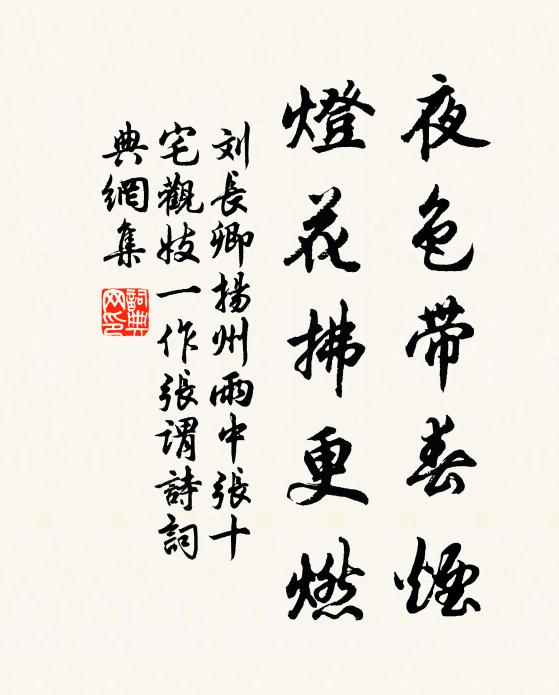 夜色带春煙
燈花拂更燃
刘長卿揚州雨中張十
宅觀妓一作張謂詩詞
典網集
詞典
网印